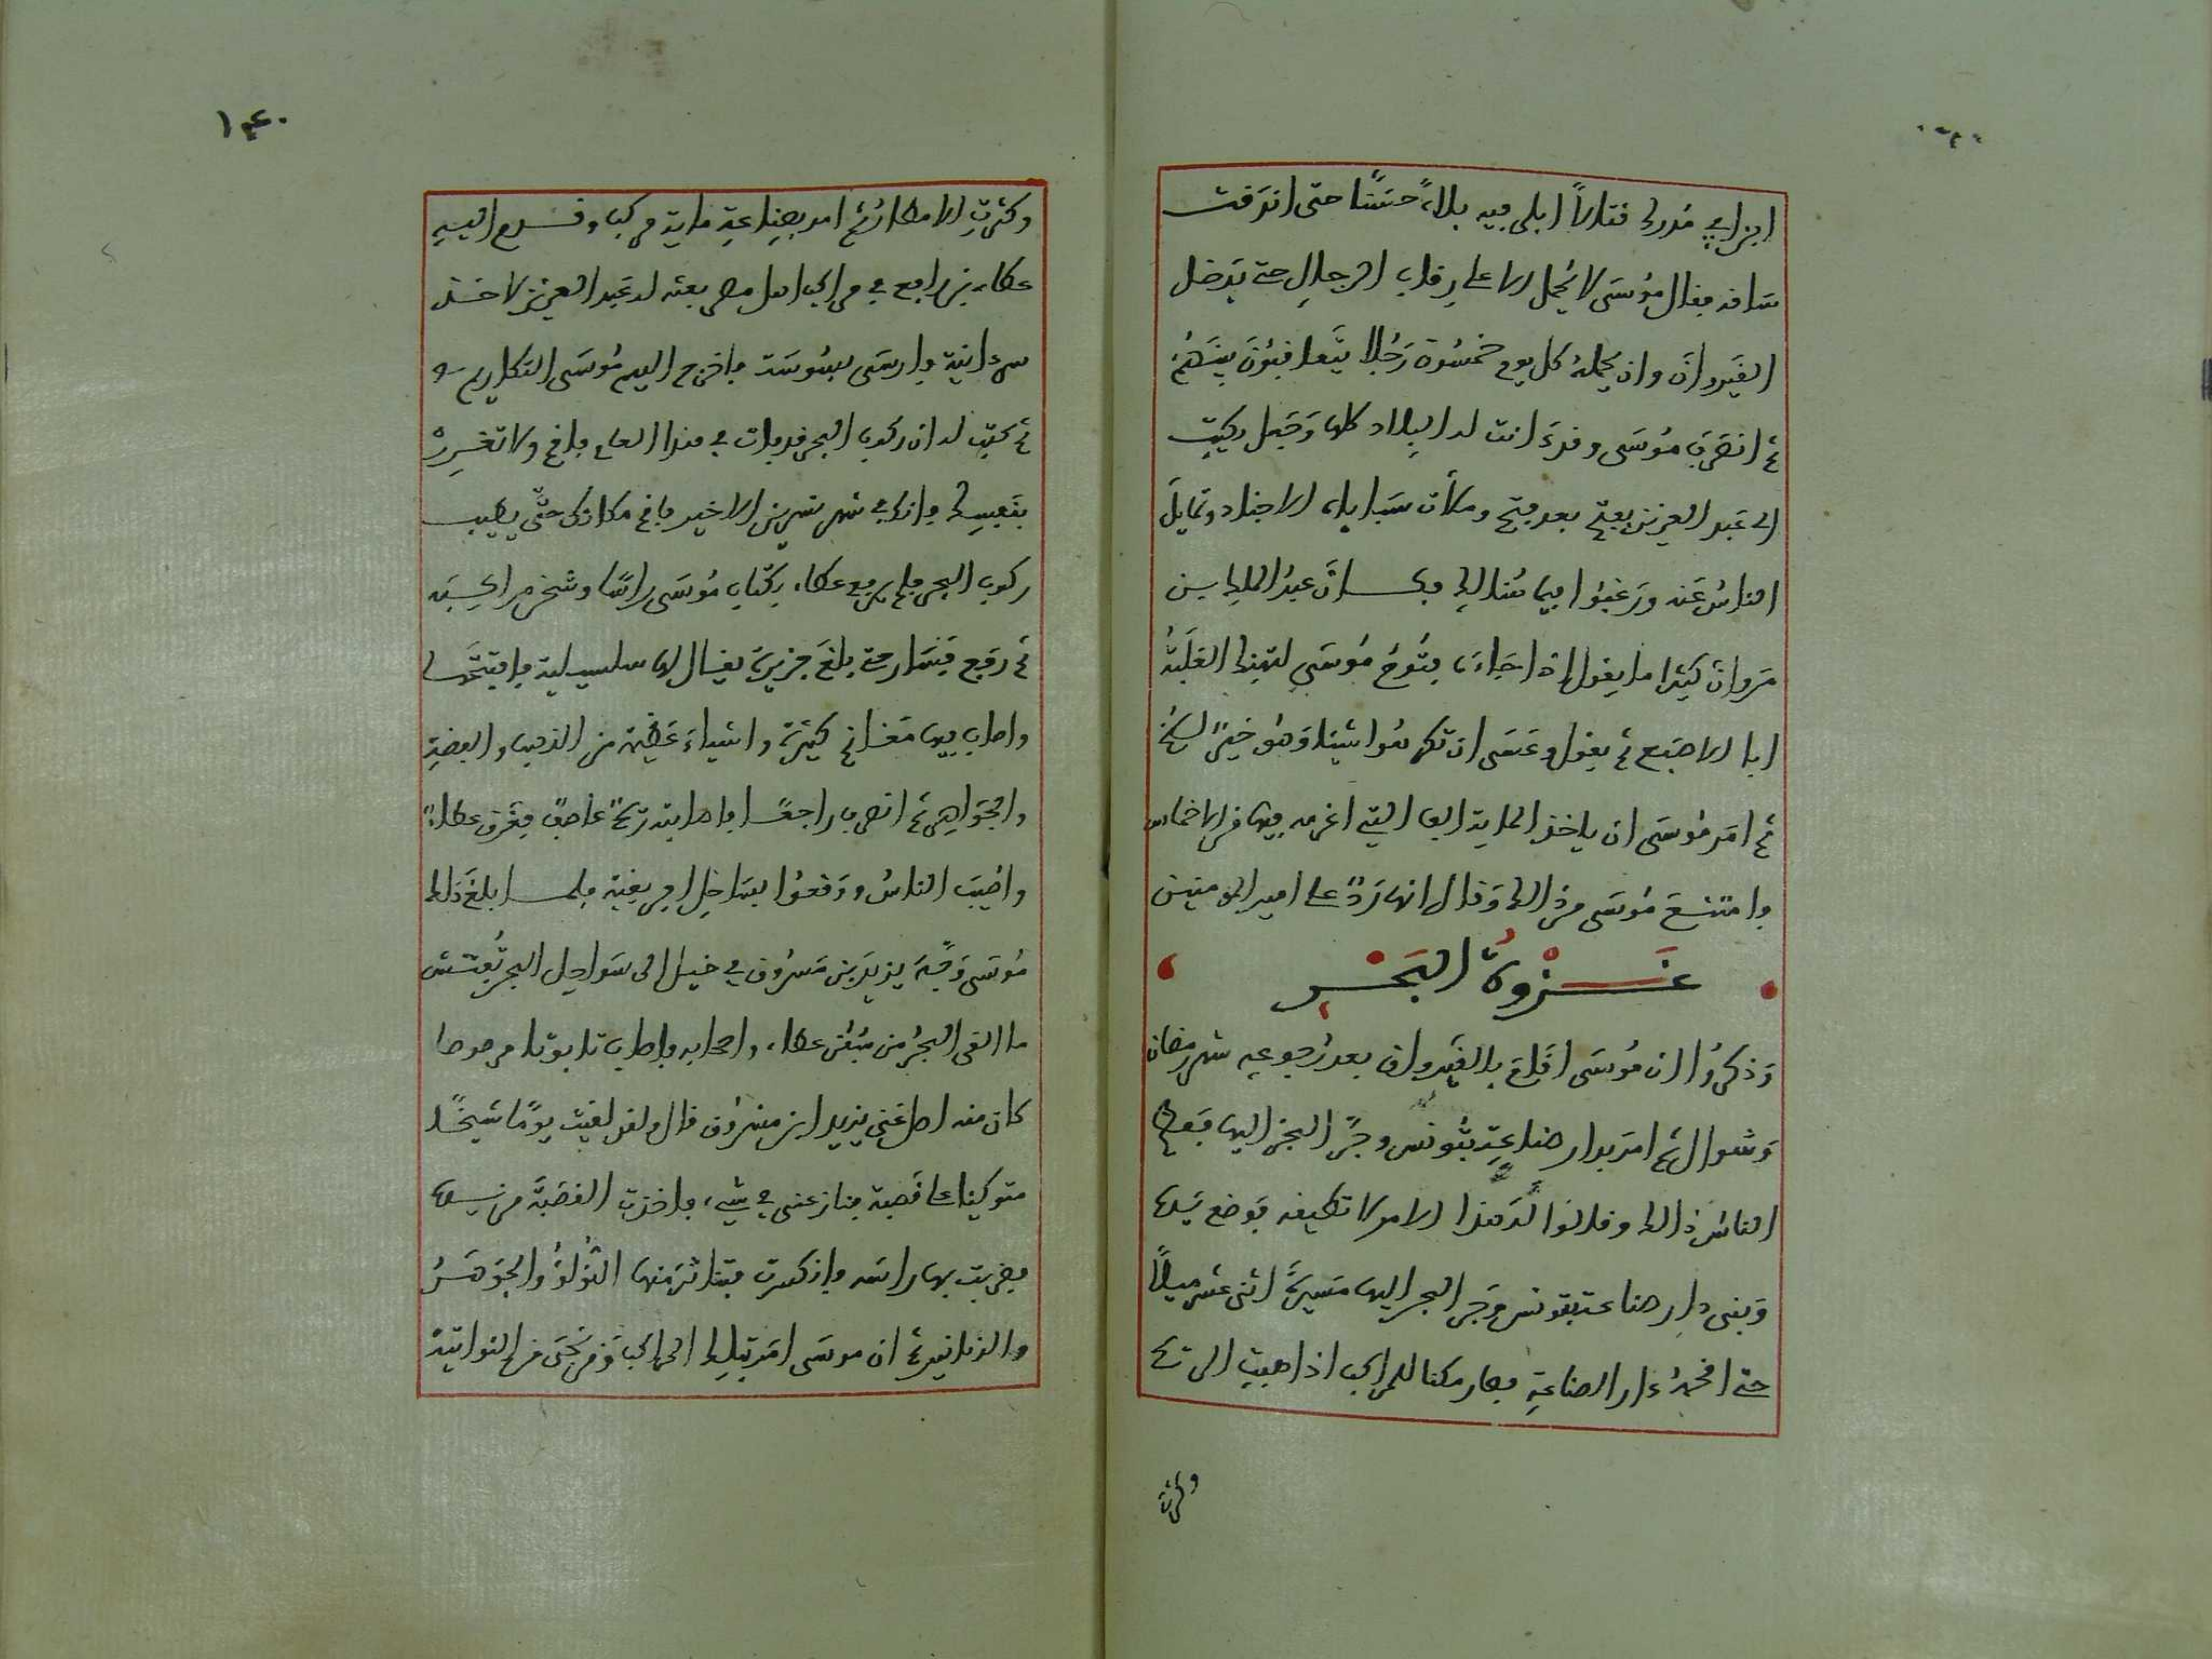 ابن ابي مدرك قتالا ابلى فيه بلاء حسنا حتى اندقت
ساقه فقال موسى لا يحمل الا على رقاب الرجال حتى يدخل
القيروان وان يحمله كل يوم خمسون رجلا يتعاقبون بينهم
ثم انصرف موسى وقد دانت له البلاد كلها وجعل يكتب
الى عبد العزيز بفتح بعد فتح وملأت سبايا الاجناد وتمايل
الناس عنه ورغبوا فيما هنالك وكان عبد الملك بن
مروان كثيرا ما يقول اذا جاءه فتوح موسى لتهنك الغلبة
ابا الاصبع ثم يقول وعسى ان تكرهوا شيئا وهو خير لكم
ثم امر موسى ان ياخذ الماية الف التي اغرمه فيها من الاخماس
وامتنع موسى من ذالك وقال انها رد على امير المومنين
غزوة البحر
وذكروا ان موسى اقام بالقيروان بعد رجوعه شهر رمضان
وشوال ثم امر بدار صناعة بتونس وجر البحر اليها فعظم
الناس ذالك وقالوا له هذا الامر لا تطيقه فوضع يده
وبنى دار صناعة بتونس وجر البحر اليها مسيرة اثنى عشر ميلا
حتى اقحمه دار الصناعة فصار مكنا للمراكب اذا هبت الريح
وكثرت
١٤٠
وكثرت الامطار ثم امر بصناعة ماية مركب وقدم اليه
عطاء بن رافع في مراكب اهل مصر بعثه له عبد العزيز لاخذ
سردانية وارسى بسوسة واخرج اليهم موسى
ثم كتب له ان ركوب البحر قد فات في هذا العام فاقم ولا تغرر
بنفسك فانك في شهر تشرين الاخير فاقم مكانك حتى يطيب
ركوب البحر فلم يرفع عطاء بكتاب موسى راسا وشحن مراكبه
ثم رفع فسار حتى بلغ جزيرة يقال لها سلسيلية وافتتحها
واصاب فيها مغانم كثيرة واشياء عظيمة من الذهب والفضة
والجواهر ثم انصرف راجعا فاصابته ريح عاصف فغرق عطاء
واصيب الناس ووقعوا بساحل افريقية فلما بلغ ذلك
موسى وجه يزيد بن مسروق في خيل الى سواحل البحر تفتش
ما القى البحر من سفن عطاء واصحابه فاصاب تابوتا مرصوصا
كان منه اصل غنى يزيد ابن مسروق قال ولقد لقيت يوما شيخا
متوكئا على قصبة فنازعني في شيء فاخذت القصبة من يده
فضربت بها راسه وانكسرت فتناثر منها اللؤلؤ والجوهر
والدنانير ثم ان موسى امر بتلك المراكب ومن نجى من النواتية